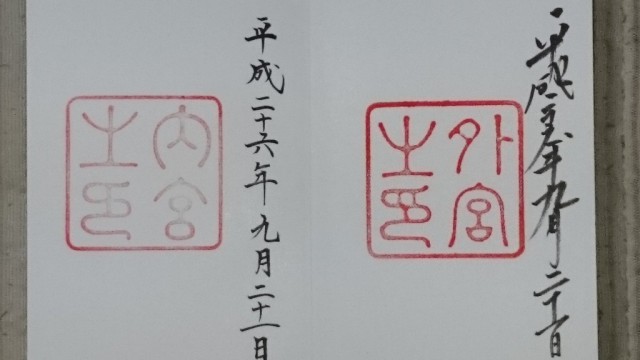 平成二十六年九月二十一日
外宮
之印
平成二十六年九月二十一日
内宮
之印